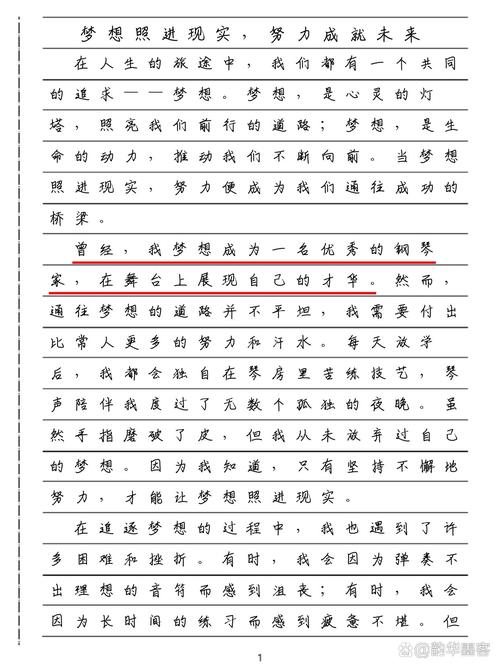 梦想照进现实，努力成就未来
在人生的旅途中，我们都有一个共同
的追求——梦想。梦想，是心灵的灯
塔，照亮我们前行的道路；梦想，是生
命的动力，推动我们不断向前。当梦想
照进现实，努力便成为我们通往成功的
桥梁。
曾经，我梦想成为一名优秀的钢琴
家，在舞台上展现自己的才华。然而，
通往梦想的道路并不平坦，我需要付出
比常人更多的努力和汗水。每天放学
后，我都会独自在琴房里苦练技艺，琴
声陪伴我度过了无数个孤独的夜晚。虽
然手指磨破了皮，但我从未放弃过自己
的梦想。因为我知道，只有坚持不懈地
努力，才能让梦想照进现实。
在追逐梦想的过程中，我也遇到了许
多困难和挫折。有时，我会因为弹奏不
出理想的音符而感到沮丧；有时，我会
因为长时间的练习而感到疲惫不堪。但
1
@韵华墨客